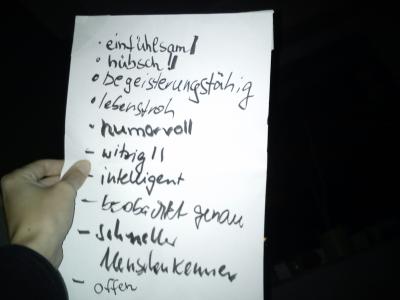 · einfühlsam!
· hübsch!!
· begeisterungsfähig
· lebensfroh
· humorvoll
- witzig!!
- intelligent
- beobachtet genau
- schneller
Menschenkenner
- offen